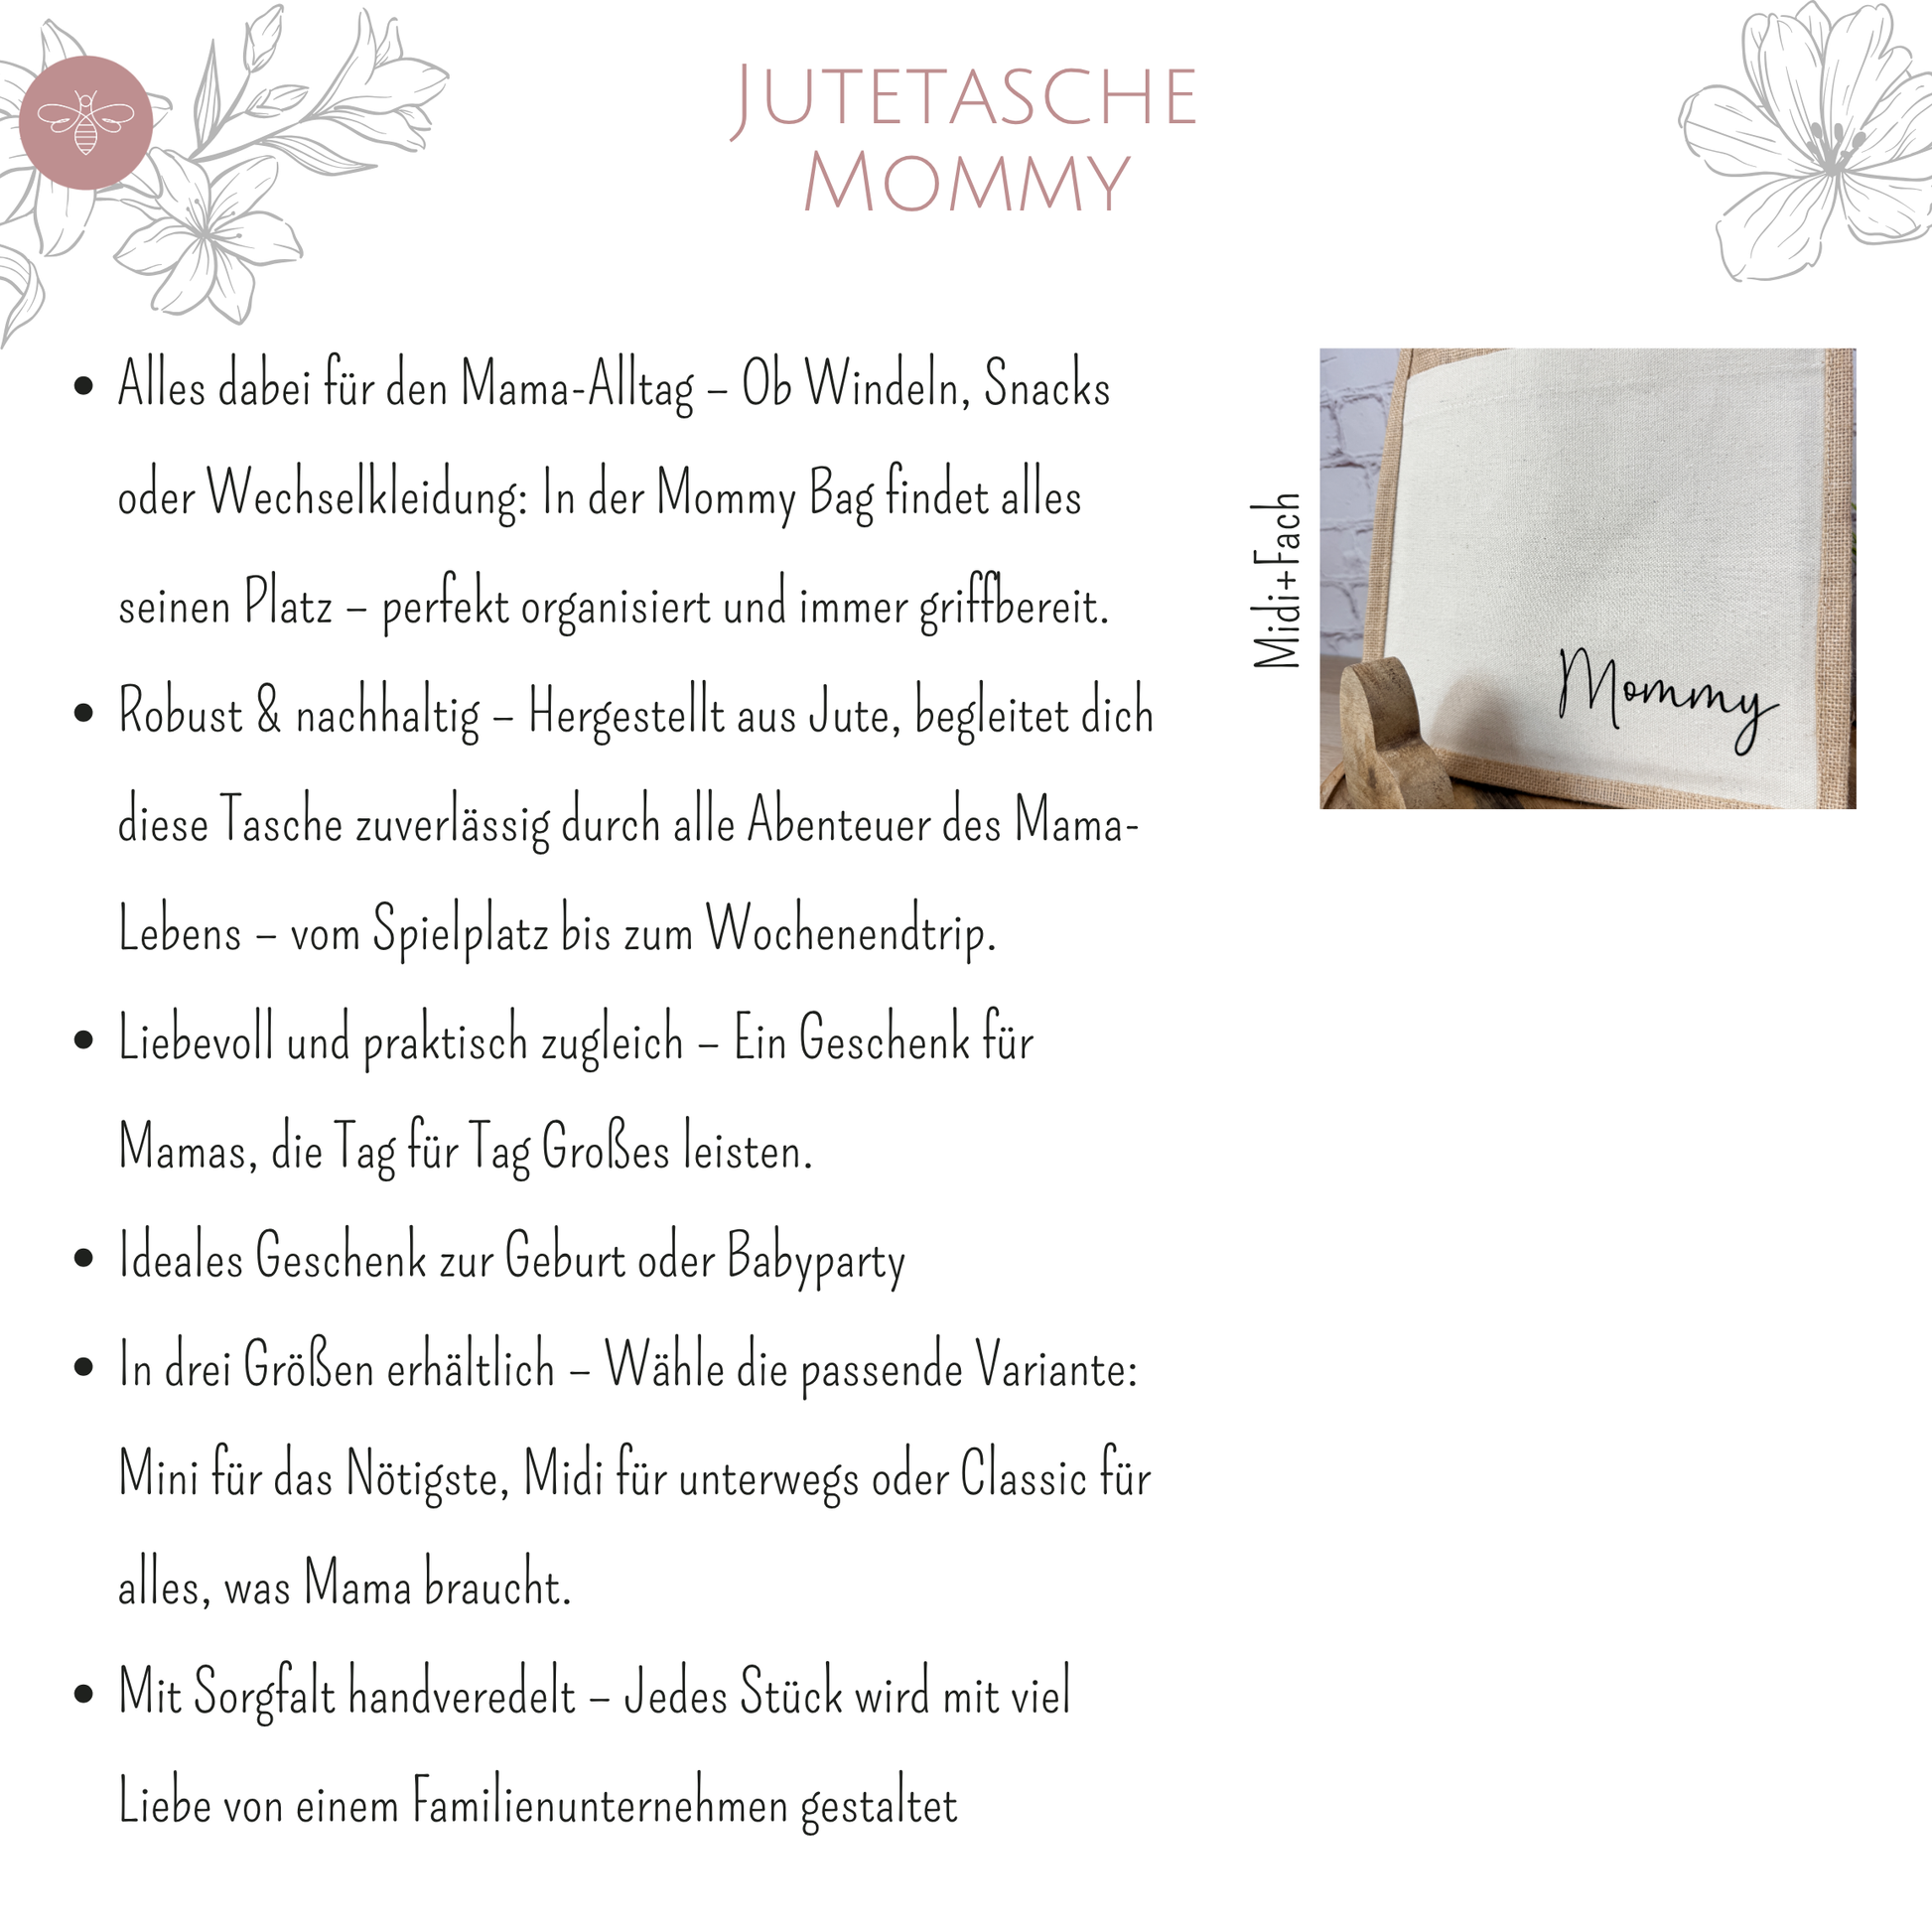 Jutetasche
Mommy
• Alles dabei für den Mama-Alltag – Ob Windeln, Snacks
oder Wechselkleidung: In der Mommy Bag findet alles
seinen Platz – perfekt organisiert und immer griffbereit.
• Robust & nachhaltig – Hergestellt aus Jute, begleitet dich
diese Tasche zuverlässig durch alle Abenteuer des Mama-
Lebens – vom Spielplatz bis zum Wochenendtrip.
• Liebevoll und praktisch zugleich – Ein Geschenk für
Mamas, die Tag für Tag Großes leisten.
• Ideales Geschenk zur Geburt oder Babyparty
• In drei Größen erhältlich – Wähle die passende Variante:
Mini für das Nötigste, Midi für unterwegs oder Classic für
alles, was Mama braucht.
• Mit Sorgfalt handveredelt – Jedes Stück wird mit viel
Liebe von einem Familienunternehmen gestaltet
Midi+Fach
Mommy